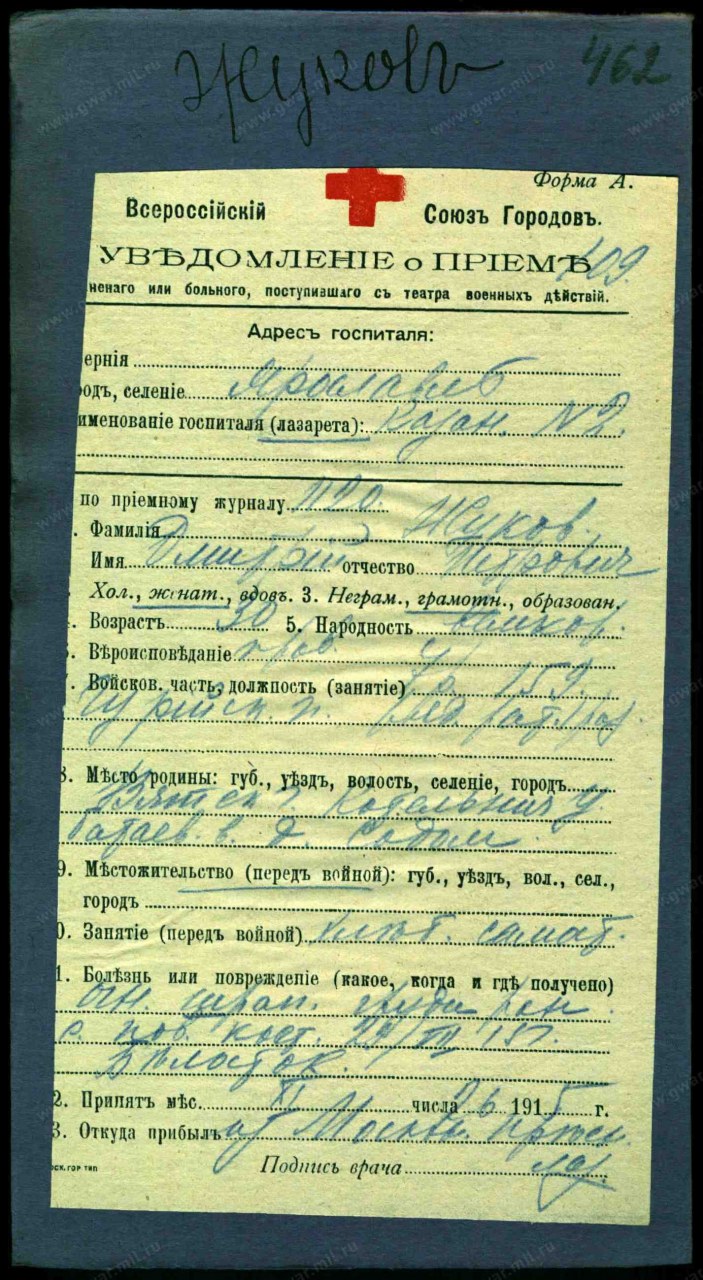 Жуковъ 462
Форма А.
Всероссійскій Союзъ Городовъ.
УВѢДОМЛЕНІЕ о ПРІЕМѢ 409.
ненаго или больного, поступившаго съ театра военныхъ дѣйствій.
Адресъ госпиталя:
ернія
одъ, селеніе Ярославль
именованіе госпиталя (лазарета): Казан. N2.
по пріемному журналу 1120
Фамилія Жуков.
Имя Дмитрій отчество Петрович
Хол., женат., вдовъ. 3. Неграм., грамотн., образован.
Возрастъ 30 5. Народность
Вѣроисповѣданіе прав
Войсков. часть, должность (занятіе) 159.
Гурійск. п.
8. Мѣсто родины: губ., уѣздъ, волость, селеніе, городъ
Вятск. г. Котельнич у
Батаев. в. д. Содом.
9. Мѣстожительство (передъ войной): губ., уѣздъ, вол., сел.,
городъ
0. Занятіе (передъ войной)
1. Болѣзнь или поврежденіе (какое, когда и гдѣ получено)
шрап. груди
с. пов. кост.
2. Принятъ мѣс. XI числа 06 1915 г.
3. Откуда прибылъ из Москвы
Подпись врача
ОСК. ГОР ТИП
www.gwar.mil.ru